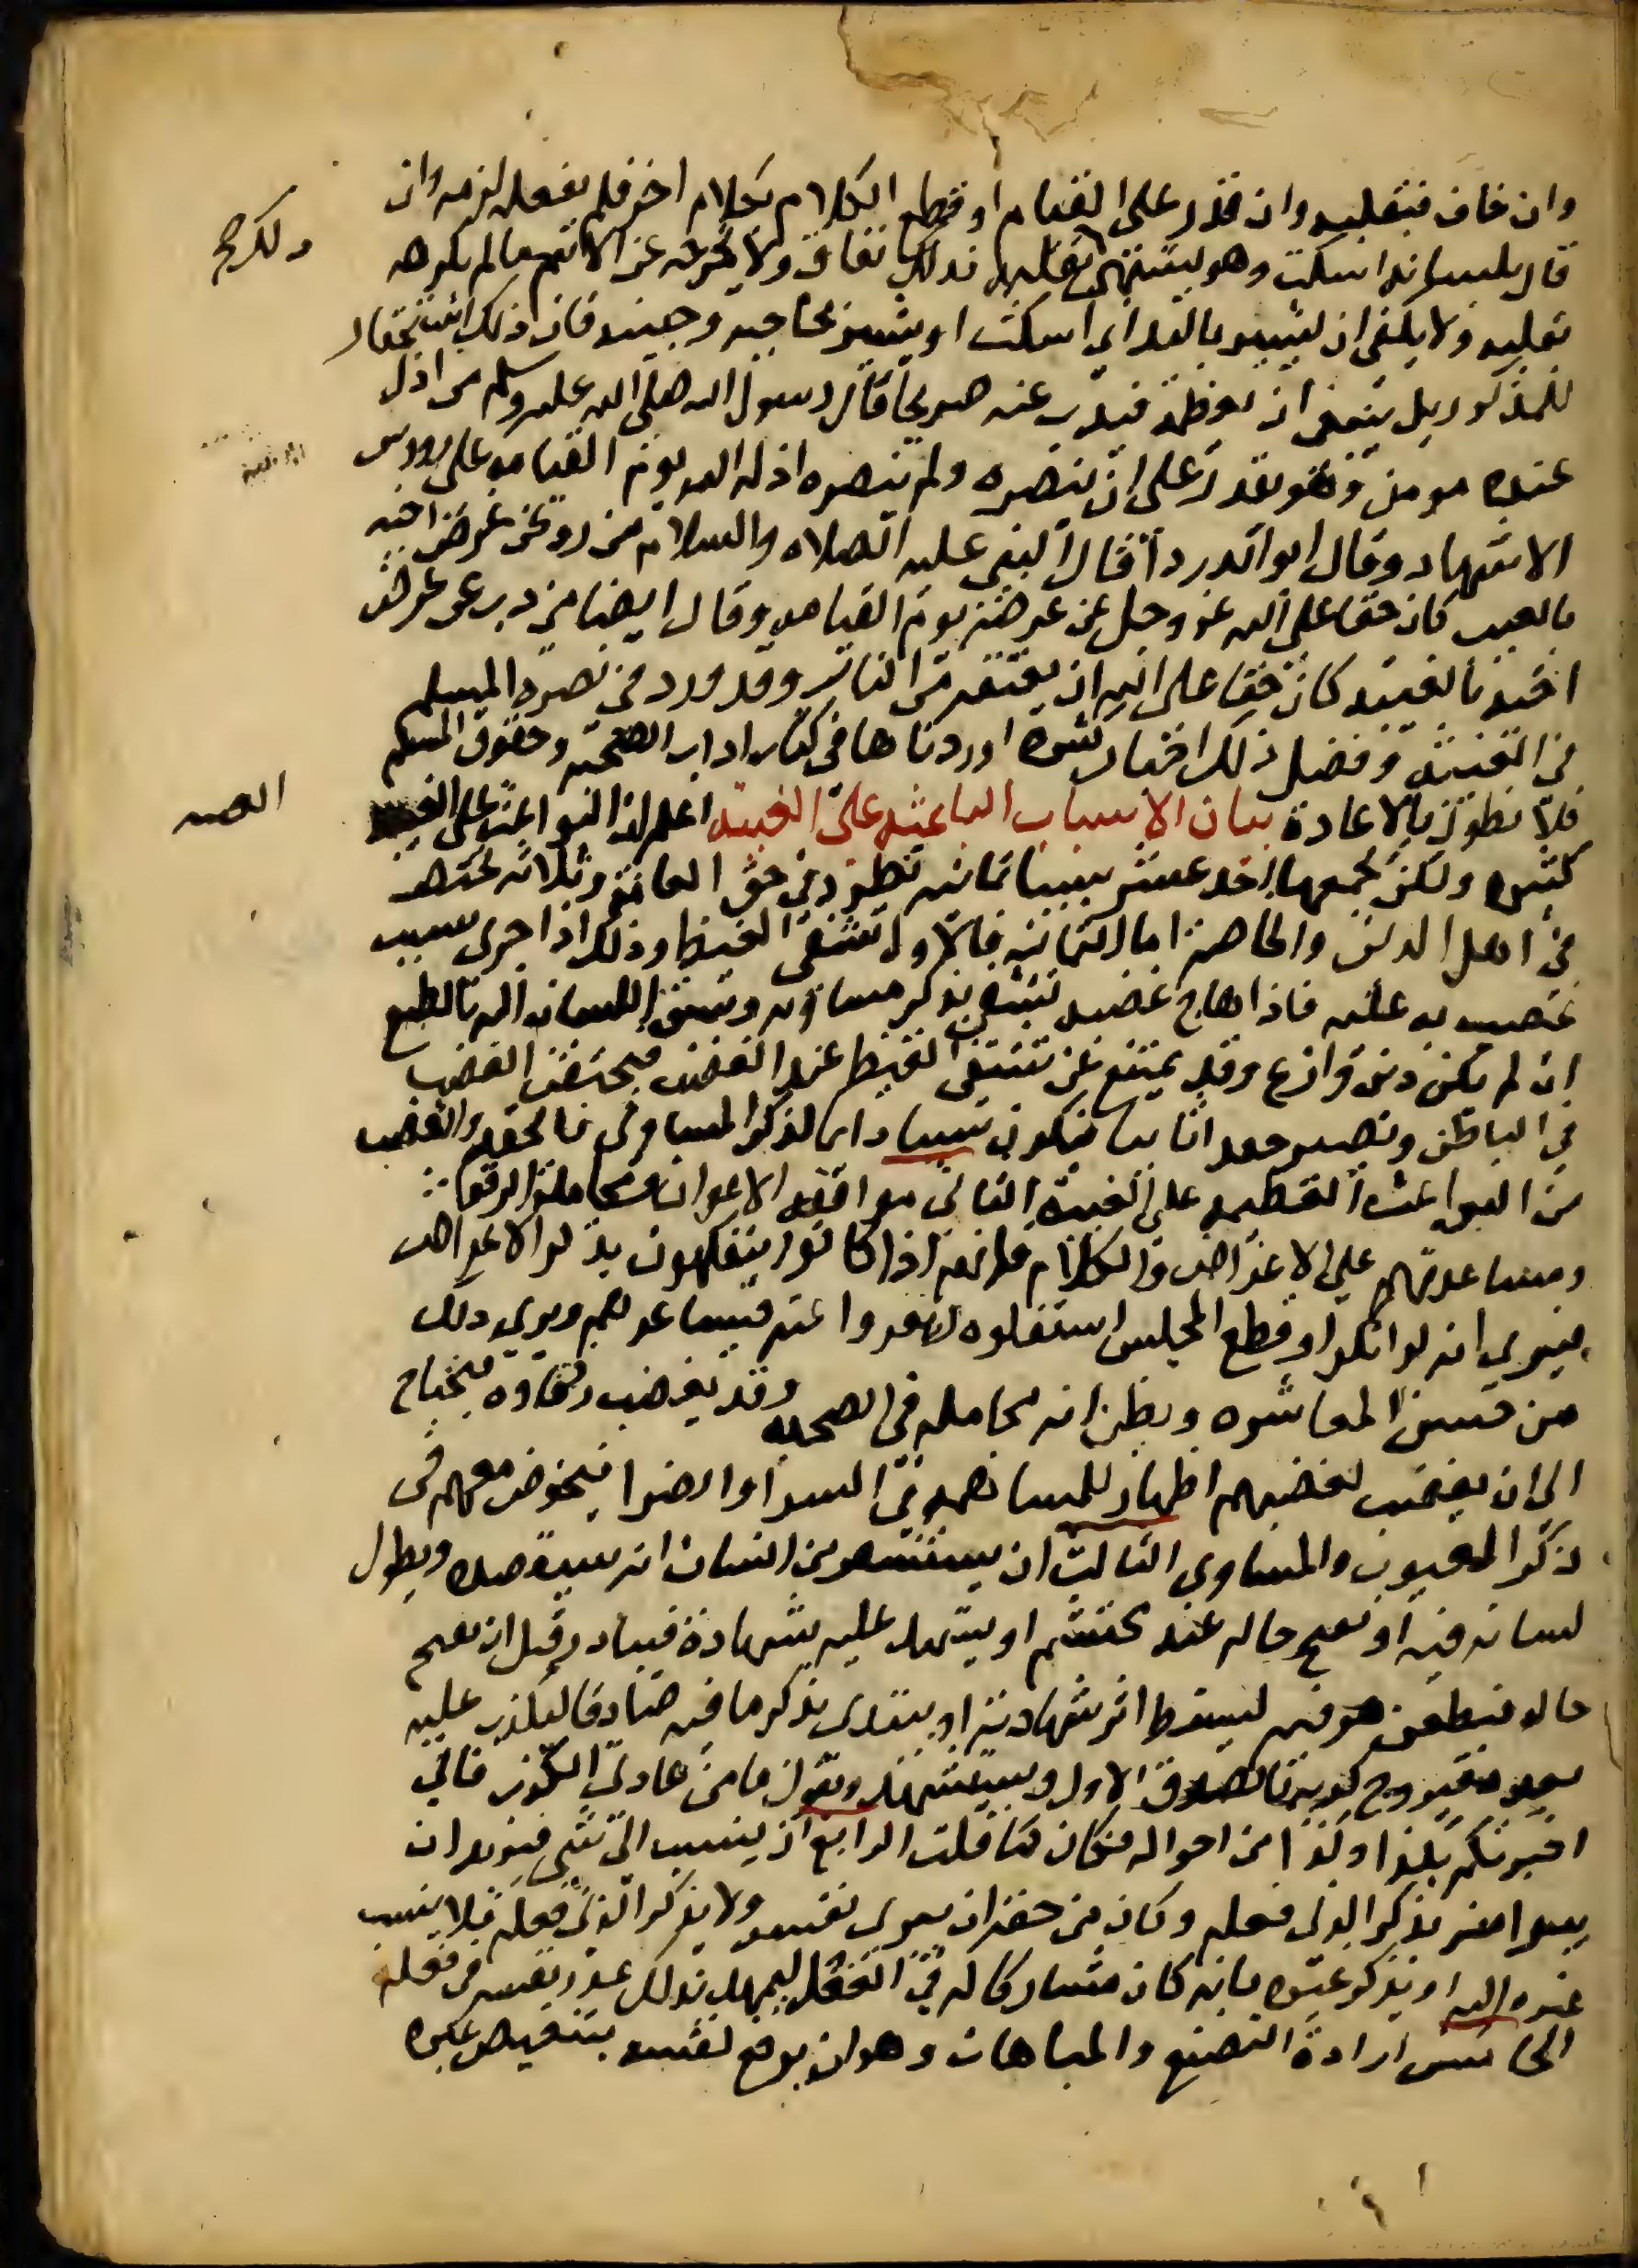 وان خاف فبقلبه وان قدر على القيام او قطع الكلام بكلام اخر فلم يفعله لزمه وان
قال بلسانه اسكت وهو يشتهي بقلبه فذلك نفاق ولا يخرجه عن الاثم ما لم يكرهه
بقلبه ولا يكفى ان يشير باليد اى اسكت او يشير بحاجبه وجبينه فان ذلك استحقار
للمذكور بل ينبغى ان يعظمه فيذب عنه صريحا قال رسول الله صلى الله عليه وسلم من اذل
عنده مومن وهو يقدر على ان ينصره ولم ينصره اذله الله يوم القيامه على رووس
الاشهاد وقال ابو الدردأ قال النبى عليه الصلاه والسلام من رد عن عرض اخيه
بالغيب كان حقا على الله عز وجل عن عرضه يوم القيامه وقال ايضا من ذب عن عرض
اخيه بالغيبه كان حقا على الله ان يعتقه من النار وقد ورد فى نصره المسلم
فى الغيبه وفضل ذلك اخبار كثيره اوردناها فى كتاب اداب الصحبه وحقوق المسلم
فلا نطول بالاعادة بيان الاسباب الباعثه على الغيبه اعلم ان البواعث على الغيبه
كثيره ولكن يجمعها احد عشر سببا ثمانيه تطرد فى حق العامه وثلاثه تختص
فى اهل الدين والخاصه اما الثمانيه فالاول تشفى الغيظ وذلك اذا جرى سبب
غضب به عليه فاذا هاج غضبه تشفى بذكر مساوئه وسبق اللسان اليه بالطبع
ان لم يكن دين وازع وقد يمتنع عن تشفى الغيظ عند الغضب فيحتقن الغضب
فى الباطن ويصير حقدا ثابتا فيكون سببا دايما لذكر المساوى فالحقد والغضب
من البواعث العظيمه على الغيبه الثانى موافقه الاعوان ومجاملة الرفقا
ومساعدتهم على الاعراض والكلام فانهم اذا كانوا يتفكهون بذكر الاعراض
فيرى انه لو انكر او قطع المجلس استثقلوه ونفروا عنه فيساعدهم ويرى ذلك
من حسن المعاشره ويظن انه مجامله فى الصحبه وقد يغضب رفقاوه فيحتاج
الى ان يغضب لغضبهم اظهار للمساهمه فى السرا والضرا فيخوض معهم فى
ذكر العيوب والمساوى الثالث ان يستشعر من انسان انه سيقصده ويطول
لسانه فيه او يقبح حاله عند محتشم او يشهد عليه بشهادة فيبادر قبل ان يقبح
حاله فيطعن هو فيه ليسقط اثر شهادته او يبتدى بذكر ما فيه صادقا ليكذب عليه
بعده فيروج كذبه بالصدق الاول ويستشهد ويقول ما من عادتى الكذب فانى
اخبرتكم بكذا وكذا من احواله فكان كما قلت الرابع ان ينسب الى شى فيريد ان
يتبرا منه بذكر الذى فعله وكان من حقه ان يبرى نفسه ولا يذكر الذى فعله فلا ينسب
غيره اليه او يذكر غيره بانه كان مشاركا له فى الفعل ليمهد بذلك عذر نفسه فى فعله
الخامس ارادة التصنع والمباهات وهو ان يرفع نفسه بتنقيص غيره